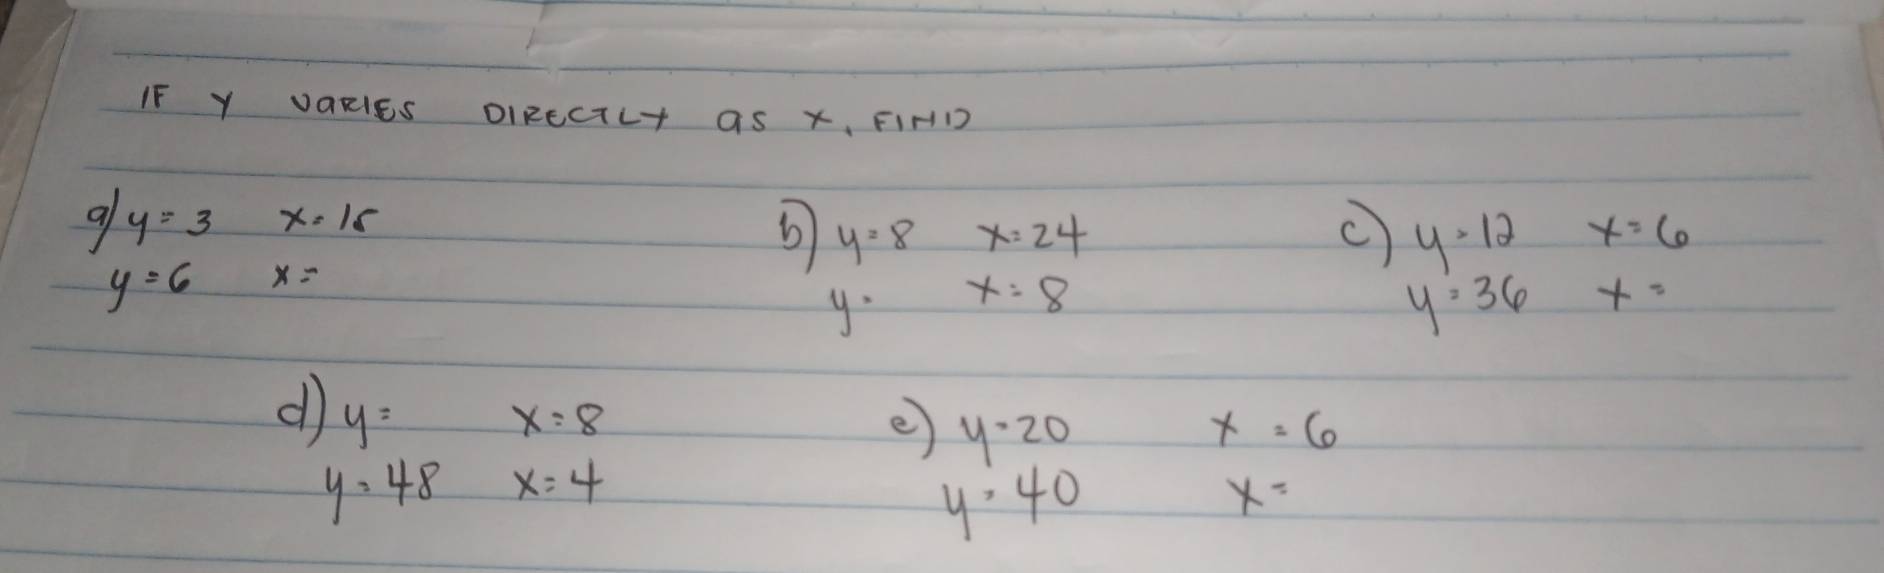 IF Y VARIES DIRECTLY as X, FIND
a) y = 3 x = 15
y = 6 x =
b) y = 8 x = 24
y = x = 8
c) y = 12 x = 6
y = 36 x =
d) y = x = 8
y = 48 x = 4
e) y = 20 x = 6
y = 40 x =